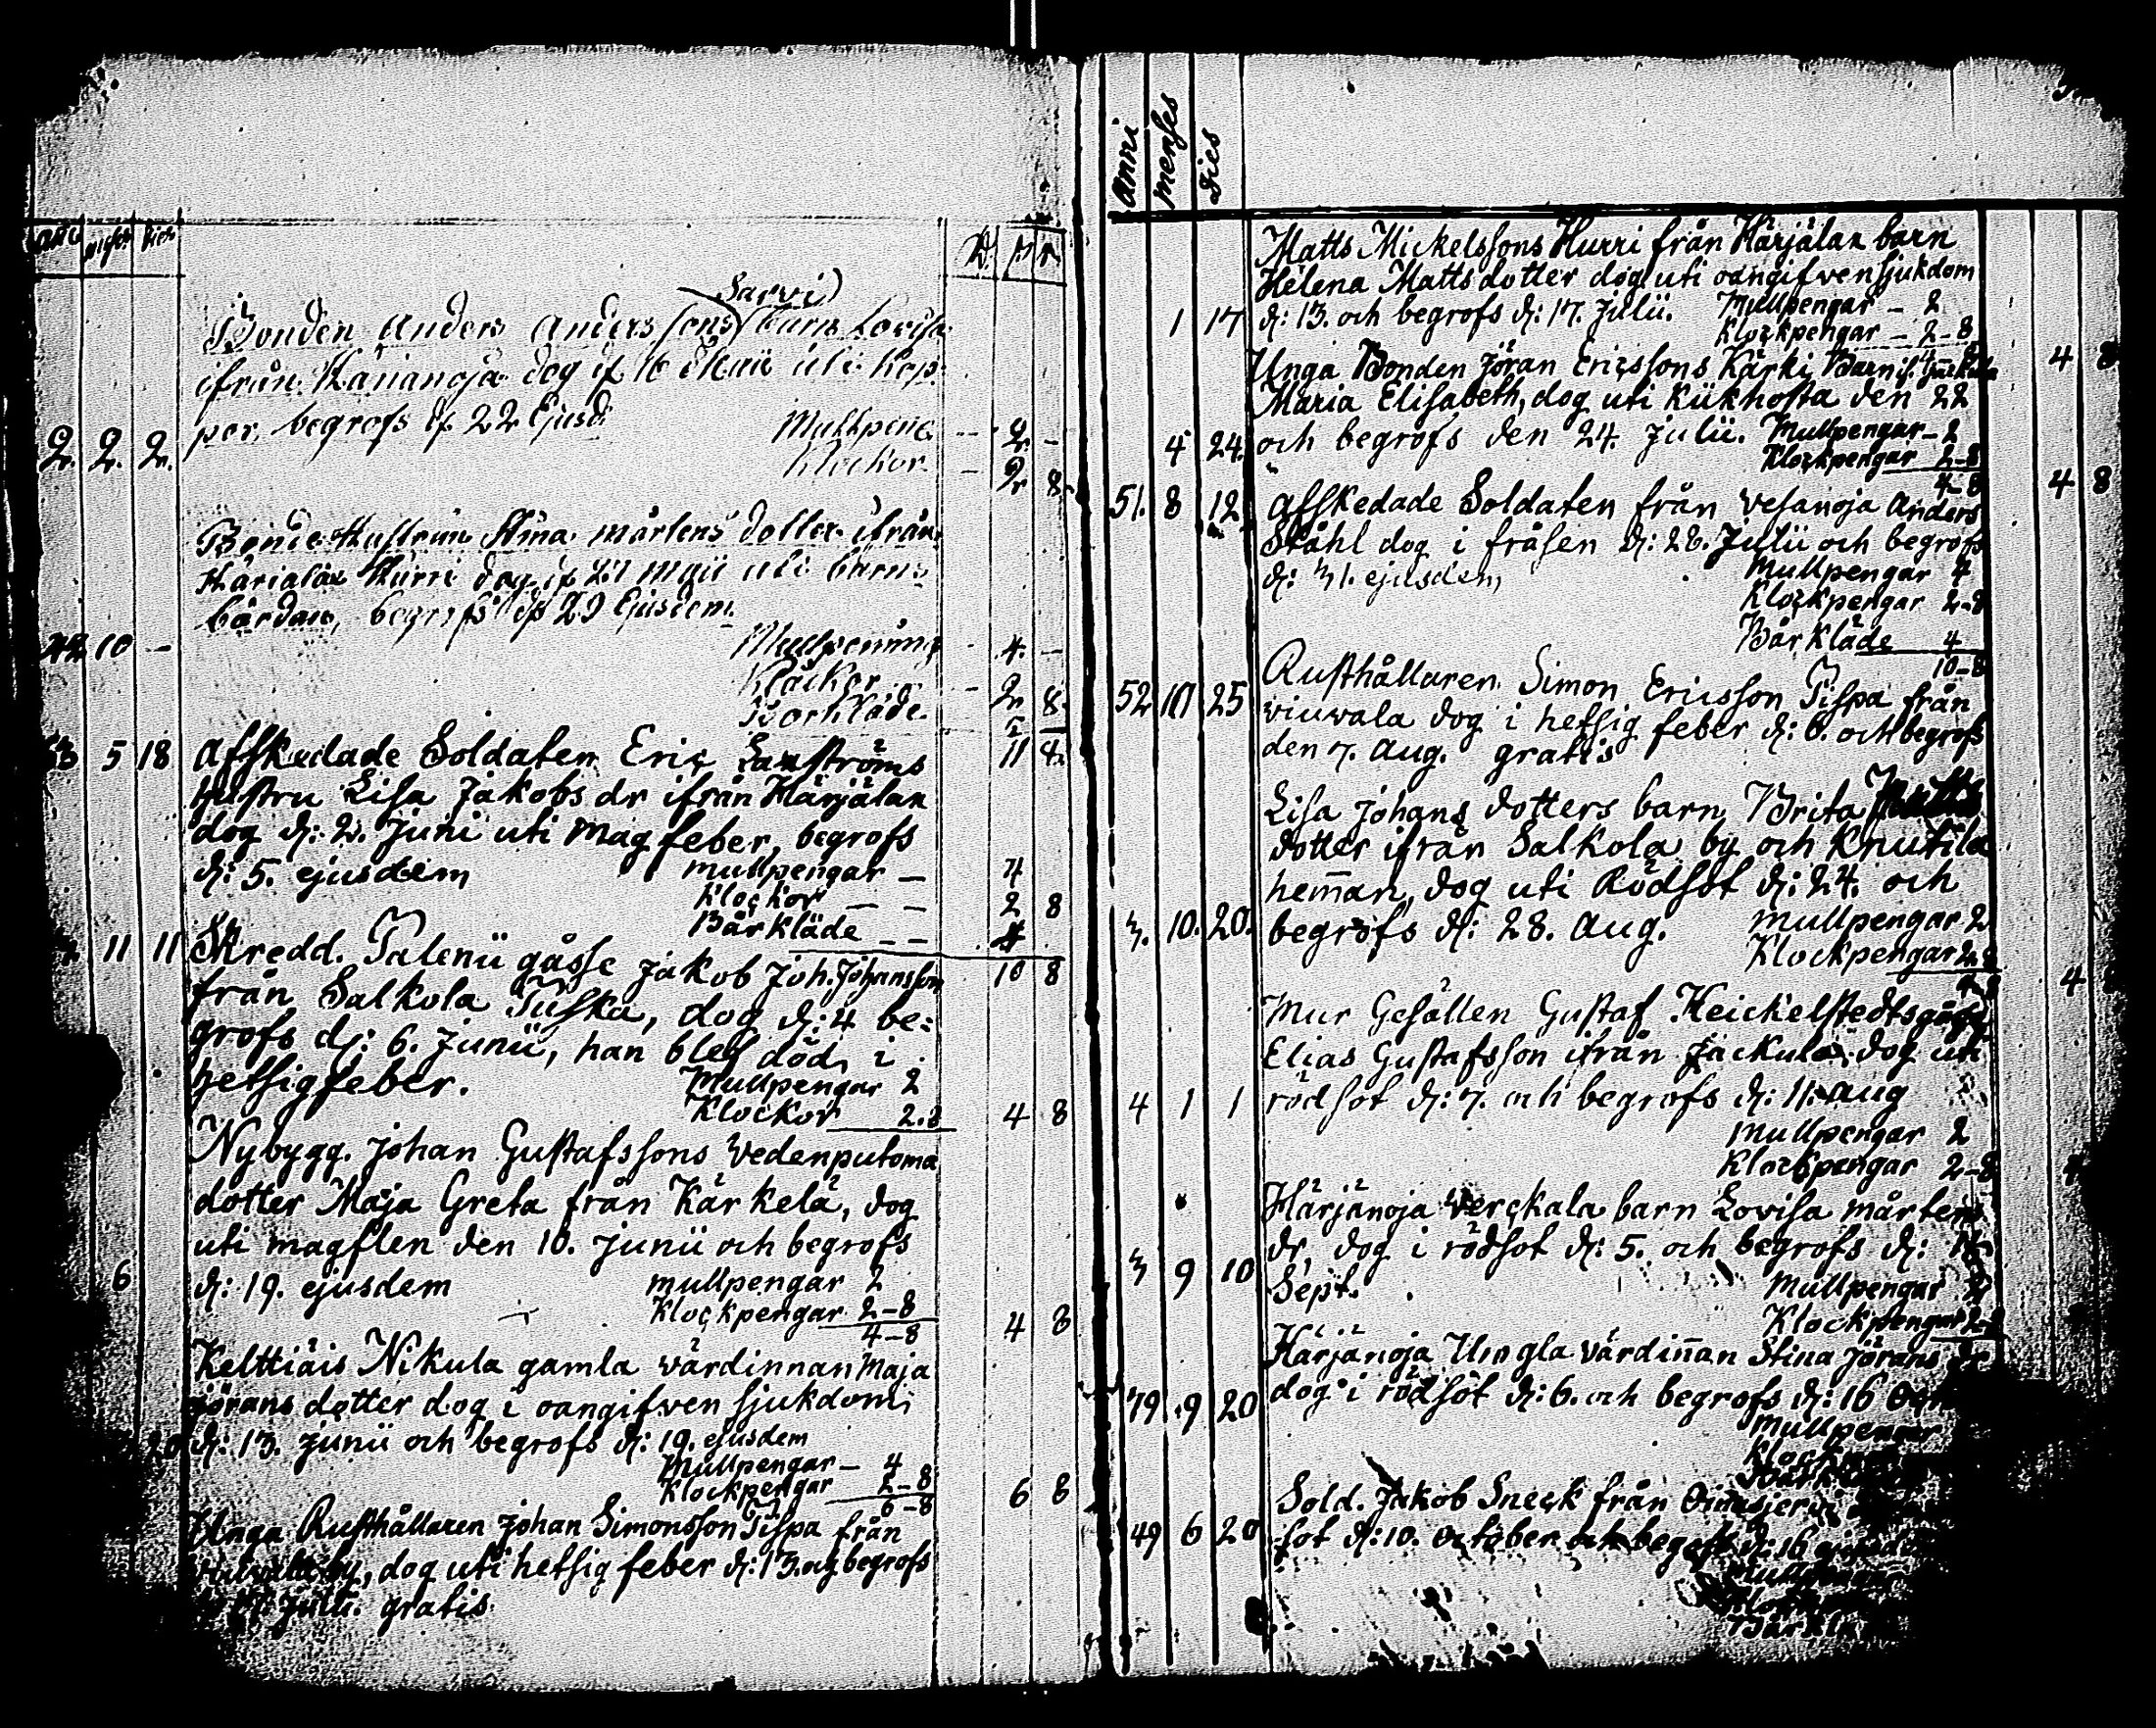 anni menses dies
Sarvi)
Bonden Anders Anders sons barn Lovisa
ifrån Karianoja dog d: 16 Maii uti Kop-
por, begrofs d: 22 Ejusd:
2. 2. 2.
Mullpeng. – 2 –
Klockor – 2 8
Bonde Hustrun Stina mårtens dotter ifrån
Härjälax Hurri dog d: 21 maii uti barns-
börden, begrofs d: 29 Ejusdem.
42 10 –
Mullpenning 4 –
Klockor – 2 8
Borkläde
11 4
5 18 Afskedade Soldaten Eric
hustru Lisa Jakobs dr ifrån Härjälax
dog d: 2. Juni uti mag feber, begrofs
d: 5. ejusdem mullpengar – 4
Klockor – – 2 8
Bårkläde – – 4
11 11 Skredd. Talenii gåsse Jakob Joh. Johansson 10 8
från Salkola Tuska, dog d: 4 be=
grofs d: 6. Junii, han blef död i
hetsigfeber. Mullpengar 2
Klockor 2.8 4 8
Nybygg. Johan Gustafssons Vedenputoma
dotter Maja Greta från Kärkelä, dog
uti magflen den 10. Junii och begrofs
6 d: 19. ejusdem mullpengar 2
Klockpengar 2–8
4–8 4 8
Kelttiäis Nikula gamla värdinnan Maja
jörans dotter dog i oangifven sjukdom
20 d: 13. junii och begrofs d: 19. ejusdem
Mullpengar – 4
Klockpengar 2–8
6–8 6 8
Unga Rusthållaren Johan Simonsson Pispa från
by, dog uti hetsig feber d: 13. begrofs
Julii. gratis
anni menses dies
Matts Mickelssons Hurri från Härjälax barn
Helena Matts dotter dog uti oangifven sjukdom
1 17 d: 13. och begrofs d: 17. Julii. Mullpengar – 2
Klockpengar – 2–8
4–8 4 8
Unga Bonden Jöran Ericssons Kärki Barn
Maria Elisabeth, dog uti Kükhosta den 22
4 24. och begrofs den 24. Julii. Mullpengar – 2
Klockpengar 2–8
4–8 4 8
51. 8 12 Afskedade Soldaten från Vesanoja Anders
Ståhl dog i fråsen d: 28. Julii och begrofs
d: 31. ejusdem, Mullpengar 4
Klockpengar 2–8
Bårkläde 4
10–8
Rusthållaren Simon Ericsson Pispa från
52 10 25 viuvala dog i hetsig feber d: 6. och begrofs
den 7. Aug. gratis
Lisa Johans dotters barn Brita Matts
dotter ifrån Salkola by och Knutila
hemman, dog uti Rödsot d: 24. och
3. 10. 20. begrofs d: 28. Aug. Mullpengar 2
Klockpengar 2–8
4–8 4
Mur Gesällen Gustaf Heickelstedts gåsse
Elias Gustafsson ifrån Jäckula: dog uti
4 1 1 rödsot d: 7. och begrofs d: 11. Aug
Mullpengar 2
Klockpengar 2–8
Härjänoja Verckala barn Lovisa mårtens
dr dog i rödsot d: 5. och begrofs d:
3 9 10 Sept. Mullpengar 2
Klockpengar
Härjänoja Uno gla värdinnan Stina Jörans dr
79 9 20 dog i rödsot d: 6. och begrofs d: 16
Mullpengar
Sold. Jakob Sneck från
49 6 20 sot d: 10. october och d: 16